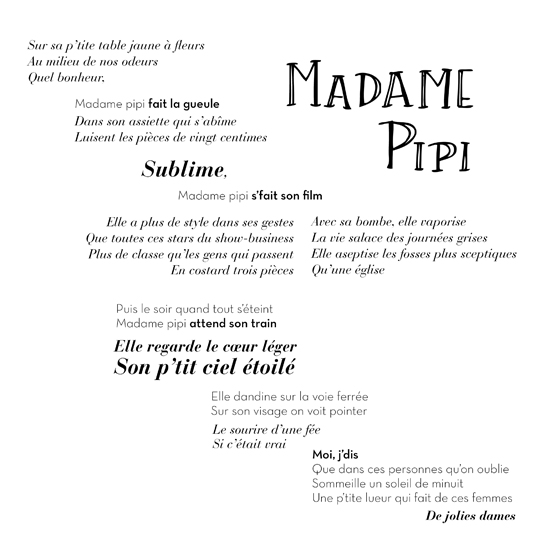 MADAME
PIPI
Sur sa p'tite table jaune à fleurs
Au milieu de nos odeurs
Quel bonheur,
Madame pipi fait la gueule
Dans son assiette qui s'abîme
Luisent les pièces de vingt centimes
Sublime,
Madame pipi s'fait son film
Elle a plus de style dans ses gestes
Que toutes ces stars du show-business
Plus de classe qu'les gens qui passent
En costard trois pièces
Avec sa bombe, elle vaporise
La vie salace des journées grises
Elle aseptise les fosses plus sceptiques
Qu'une église
Puis le soir quand tout s'éteint
Madame pipi attend son train
Elle regarde le cœur léger
Son p'tit ciel étoilé
Elle dandine sur la voie ferrée
Sur son visage on voit pointer
Le sourire d'une fée
Si c'était vrai
Moi, j'dis
Que dans ces personnes qu'on oublie
Sommeille un soleil de minuit
Une p'tite lueur qui fait de ces femmes
De jolies dames